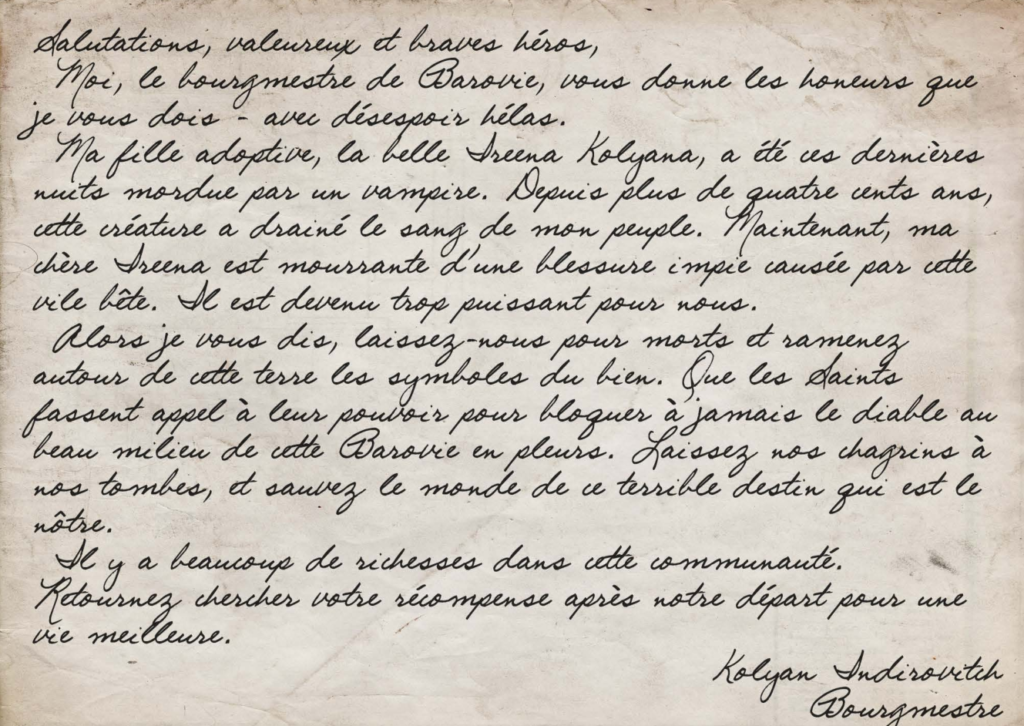 Salutations, valeureux et braves héros,
Moi, le bourgmestre de Barovie, vous donne les honeurs que
je vous dois - avec désespoir hélas.
Ma fille adoptive, la belle Ireena Kolyana, a été ces dernières
nuits mordue par un vampire. Depuis plus de quatre cents ans,
cette créature a drainé le sang de mon peuple. Maintenant, ma
chère Ireena est mourrante d'une blessure impie causée par cette
vile bête. Il est devenu trop puissant pour nous.
Alors je vous dis, laissez-nous pour morts et ramenez
autour de cette terre les symboles du bien. Que les Saints
fassent appel à leur pouvoir pour bloquer à jamais le diable au
beau milieu de cette Barovie en pleurs. Laissez nos chagrins à
nos tombes, et sauvez le monde de ce terrible destin qui est le
nôtre.
Il y a beaucoup de richesses dans cette communauté.
Retournez chercher votre récompense après notre départ pour une
vie meilleure.
Kolyan Indirovitch
Bourgmestre